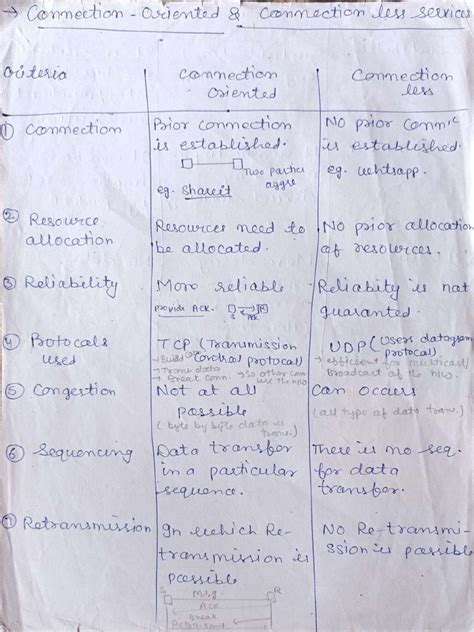 → Connection-Oriented & Connection less services
Criteria
Connection Oriented
Connection less
① Connection
Prior connection
is established.
Two parties
aggre
eg. shareit
No prior connⁿ
is established.
eg. whtsapp.
② Resource
allocation
Resources need to
be allocated.
No prior allocation
of resources.
③ Reliability
More reliable
provide Ack.
S
R
ACK
Reliabity is not
guaranted.
④ Protocals
used
TCP (Transmission
Control protocal)
→ Build Conn
→ Trans data
→ Break Conn.
→ So other can
use the N/W
UDP (Users datagram
protocal)
→ efficient for multicast/
Broadcast of the N/W.
⑤ Congestion
Not at all
possible
(byte by byte data is
trans.)
Can occurs
(all type of data trans.)
⑥ Sequencing
Data transfer
in a particular
sequence.
There is no seq.
for data
transfer.
⑦ Retransmission
In which Re-
transmission is
possible
S
Msg.
R
ACK
Break
No Re-transmi-
ssion is possible